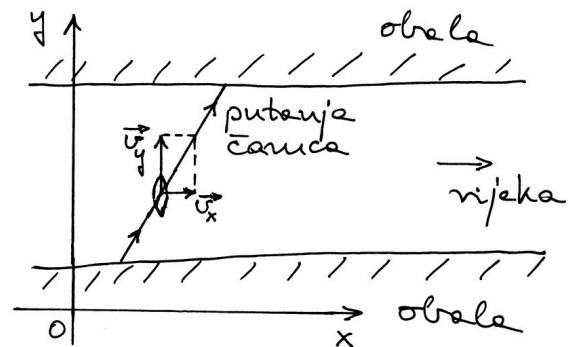 y
obala
putanja
čamca
v⃗y
v⃗x
rijeka
0
x
obala